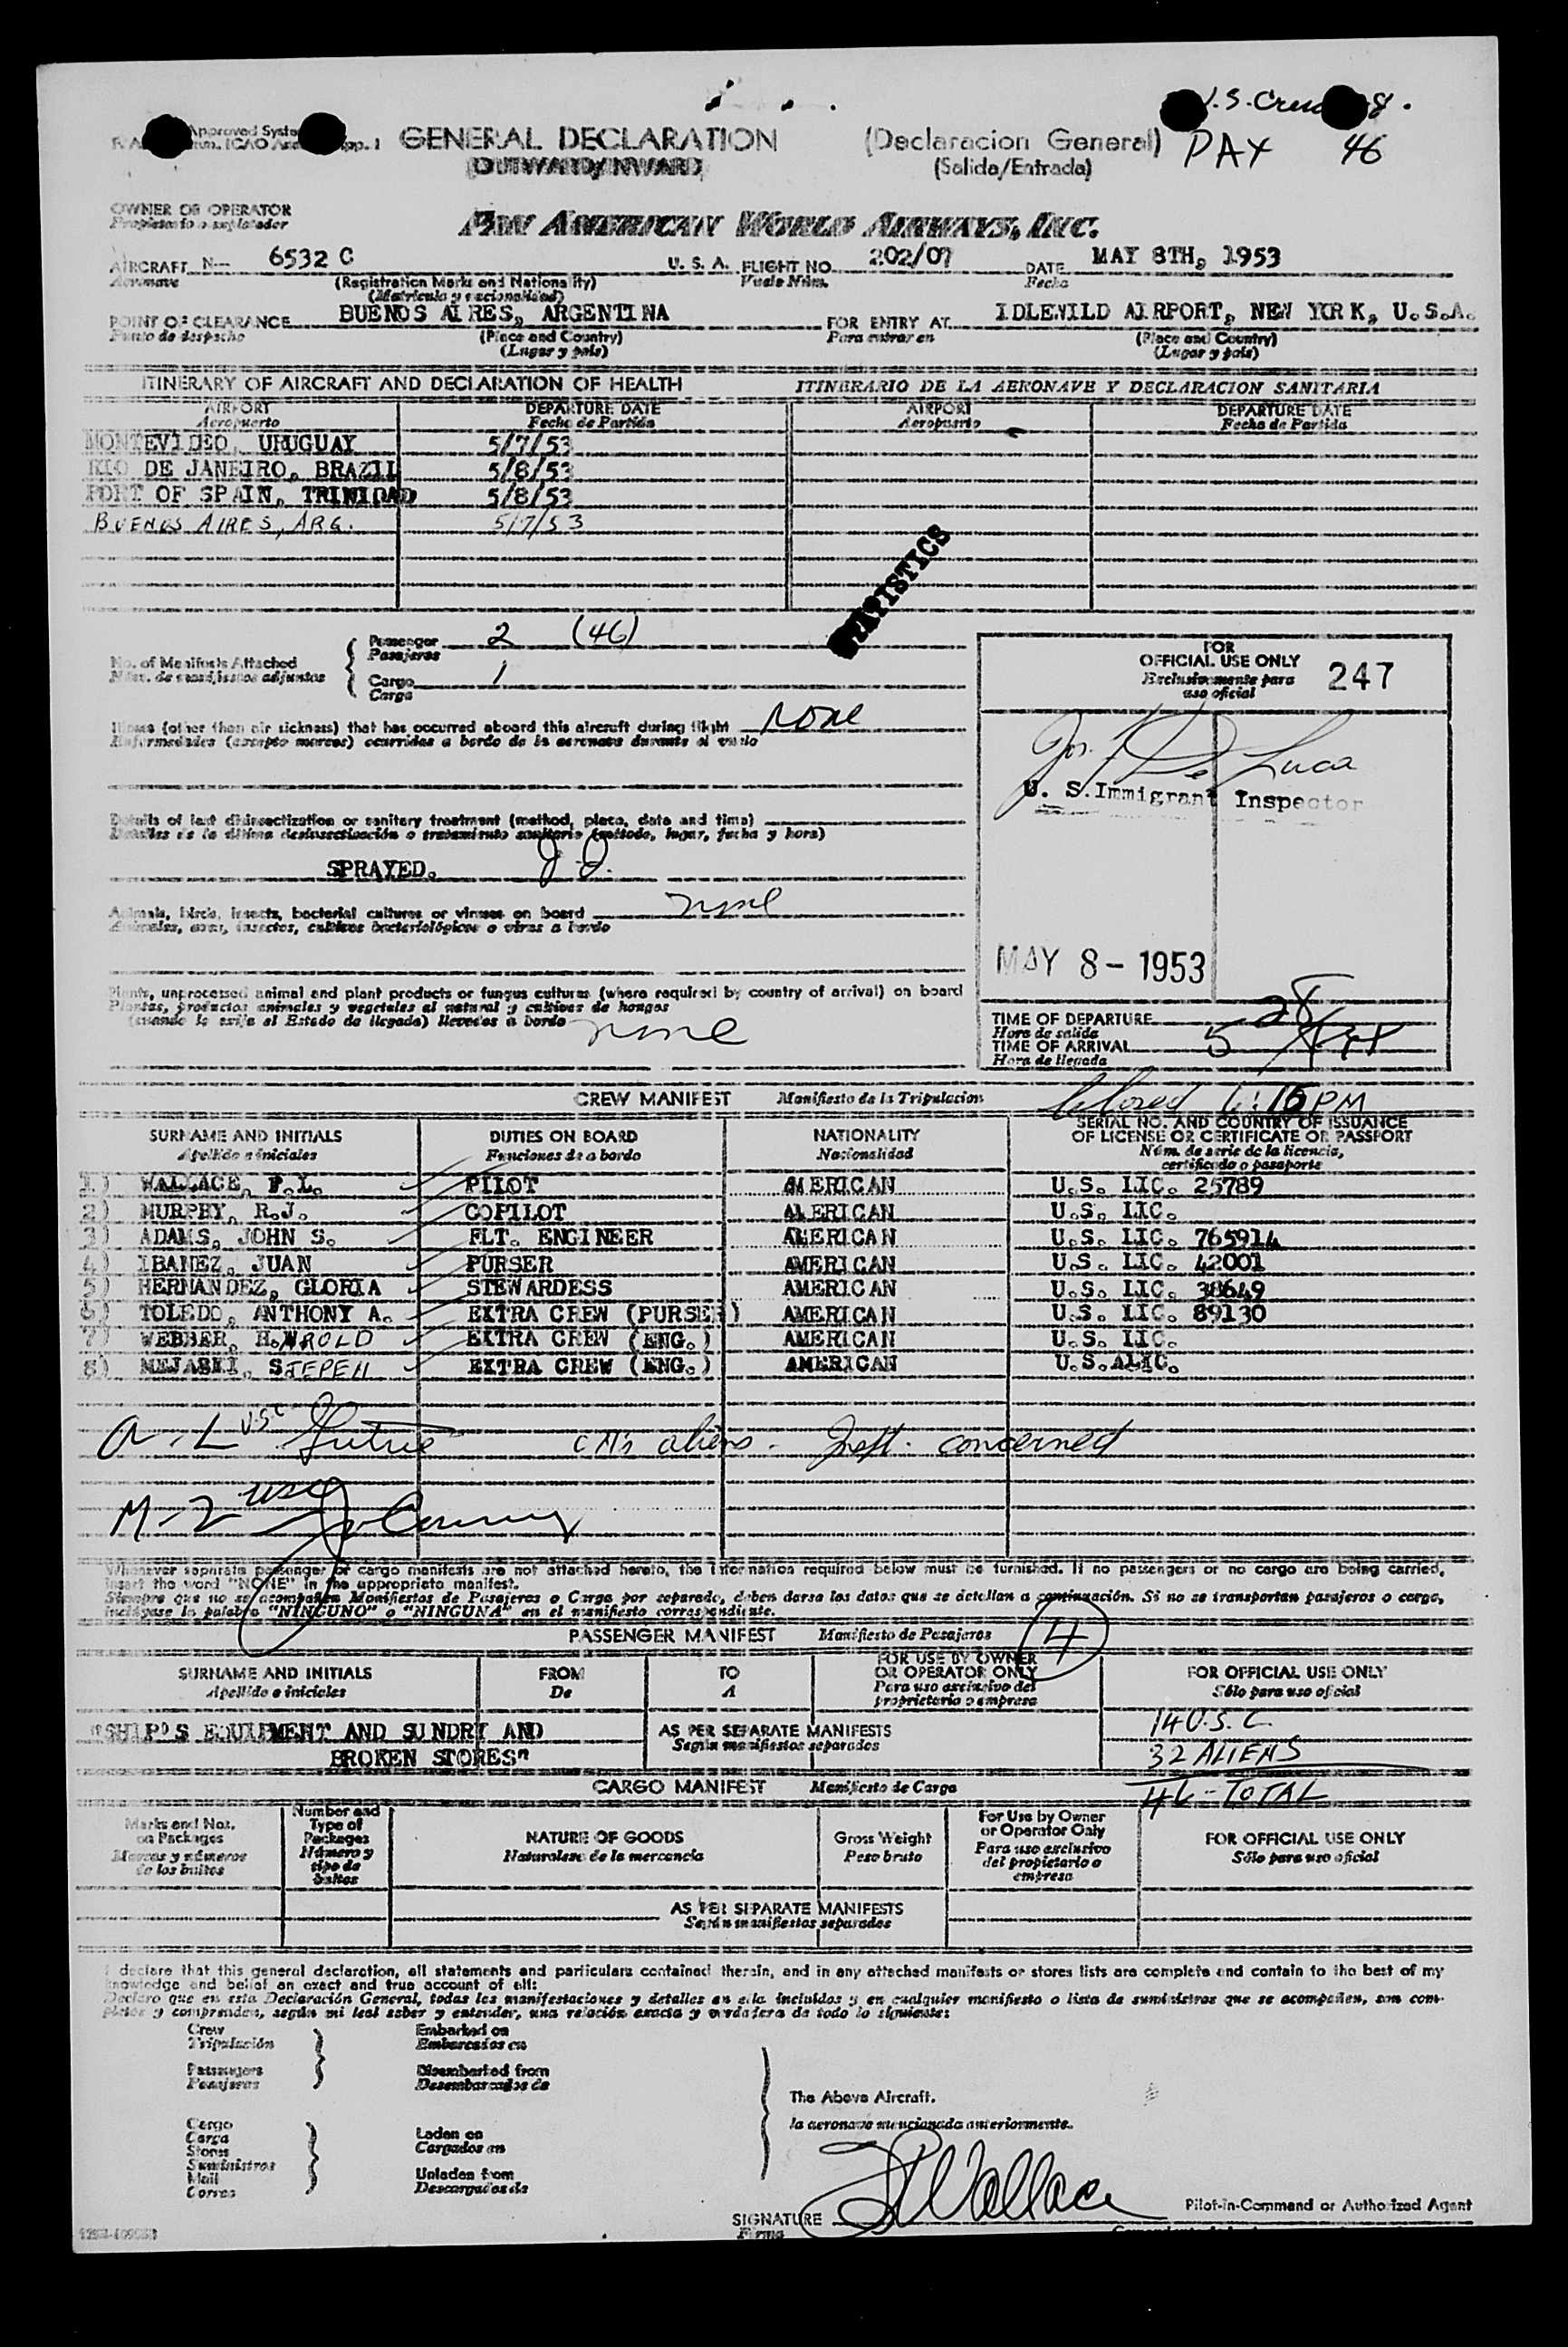 U.S. Crew 8.
PAX 46
Approved
GENERAL DECLARATION (Declaracion General)
(OUTWARD/INWARD) (Salida/Entrada)
OWNER OR OPERATOR
PAN AMERICAN WORLD AIRWAYS, INC.
AIRCRAFT N-- 6532 C U. S. A. FLIGHT NO. 202/07 DATE MAY 8TH, 1953
Aeronave (Registration Marks and Nationality) Vuelo Núm. Fecha
(Matrícula y nacionalidad)
POINT OF CLEARANCE BUENOS AIRES, ARGENTINA FOR ENTRY AT IDLEWILD AIRPORT, NEW YORK, U.S.A.
Punto de despacho (Place and Country) Para entrar en (Place and Country)
(Lugar y país) (Lugar y país)
ITINERARY OF AIRCRAFT AND DECLARATION OF HEALTH ITINERARIO DE LA AERONAVE Y DECLARACION SANITARIA
AIRPORT DEPARTURE DATE AIRPORT DEPARTURE DATE
Aeropuerto Fecha de Partida Aeropuerto Fecha de Partida
MONTEVIDEO, URUGUAY 5/7/53
RIO DE JANEIRO, BRAZIL 5/8/53
PORT OF SPAIN, TRINIDAD 5/8/53
BUENOS AIRES, ARG. 5/7/53
STATISTICS
No. of Manifests Attached Passenger 2 (46)
Pasajeros
Cargo 1
Carga
FOR
OFFICIAL USE ONLY 247
Exclusivamente para
uso oficial
Illness (other than air sickness) that has occurred aboard this aircraft during flight None
Enfermedades (excepto mareos) ocurridas a bordo de la aeronave durante el vuelo
Jos. F. De Luca
U. S. Immigrant Inspector
Details of last disinsectization or sanitary treatment (method, place, date and time)
Detalles de la última desinsectización o tratamiento sanitario (método, lugar, fecha y hora)
SPRAYED.
Animals, birds, insects, bacterial cultures or viruses on board none
Animales, aves, insectos, cultivos bacteriológicos o virus a bordo
MAY 8 - 1953
Plants, unprocessed animal and plant products or fungus cultures (where required by country of arrival) on board
Plantas, productos animales y vegetales al natural y cultivos de hongos
(cuando lo exija el Estado de llegada) llevados a bordo none
TIME OF DEPARTURE
Hora de salida
TIME OF ARRIVAL 5 28
Hora de llegada
CREW MANIFEST Manifiesto de la Tripulacion 6:15 PM
SURNAME AND INITIALS DUTIES ON BOARD NATIONALITY SERIAL NO. AND COUNTRY OF ISSUANCE
OF LICENSE OR CERTIFICATE OR PASSPORT
Apellido e iniciales Funciones de a bordo Nacionalidad Núm. de serie de la licencia,
certificado o pasaporte
1) WALLACE, F.L. PILOT AMERICAN U.S. LIC. 25789
2) MURPHY, R.J. COPILOT AMERICAN U.S. LIC.
3) ADAMS, JOHN S. FLT. ENGINEER AMERICAN U.S. LIC. 765914
4) IBANEZ, JUAN PURSER AMERICAN U.S. LIC. 42001
5) HERNANDEZ, GLORIA STEWARDESS AMERICAN U.S. LIC. 38649
6) TOLEDO, ANTHONY A. EXTRA CREW (PURSER) AMERICAN U.S. LIC. 89130
7) WEBBER, HAROLD EXTRA CREW (ENG.) AMERICAN U.S. LIC.
8) MEJASKI, STEPEH EXTRA CREW (ENG.) AMERICAN U.S. LIC.
A-L USC aliens. Insp. concerned
M-Z USC
Whenever separate passenger or cargo manifests are not attached hereto, the information required below must be furnished. If no passengers or no cargo are being carried,
insert the word "NONE" in the appropriate manifest.
Siempre que no se acompañen Manifiestos de Pasajeros o Carga por separado, deben darse los datos que se detallan a continuación. Si no se transportan pasajeros o carga,
inclúyase la palabra "NINGUNO" o "NINGUNA" en el manifiesto correspondiente.
PASSENGER MANIFEST Manifiesto de Pasajeros 4
SURNAME AND INITIALS FROM TO FOR USE BY OWNER
OR OPERATOR ONLY FOR OFFICIAL USE ONLY
Apellido e iniciales De A Para uso exclusivo del
propietario o empresa Sólo para uso oficial
"SHIP'S EQUIPMENT AND SUNDRY AND AS PER SEPARATE MANIFESTS 14 U.S.C.
BROKEN STORES" Según manifiestos separados 32 ALIENS
CARGO MANIFEST Manifiesto de Carga 46 - TOTAL
Marks and Nos.
on Packages
Marcas y números
de los bultos
Number and
Type of
Packages
Número y
tipo de
bultos
NATURE OF GOODS
Naturaleza de la mercancía
Gross Weight
Peso bruto
For Use by Owner
or Operator Only
Para uso exclusivo
del propietario o
empresa
FOR OFFICIAL USE ONLY
Sólo para uso oficial
AS PER SEPARATE MANIFESTS
Según manifiestos separados
I declare that this general declaration, all statements and particulars contained therein, and in any attached manifests or stores lists are complete and contain to the best of my
knowledge and belief an exact and true account of all:
Declaro que en esta Declaración General, todas las manifestaciones y detalles en ella incluidos y en cualquier manifiesto o lista de suministros que se acompañen, son com-
pletos y comprenden, según mi leal saber y entender, una relación exacta y verdadera de todo lo siguiente:
Crew Embarked on
Tripulación Embarcados en
Passengers Disembarked from
Pasajeros Desembarcados de
The Above Aircraft.
la aeronave mencionada anteriormente.
Cargo
Carga
Stores
Suministros
Mail
Correo
Laden on
Cargados en
Unladen from
Descargados de
SIGNATURE F L Wallace Pilot-in-Command or Authorized Agent
Firma